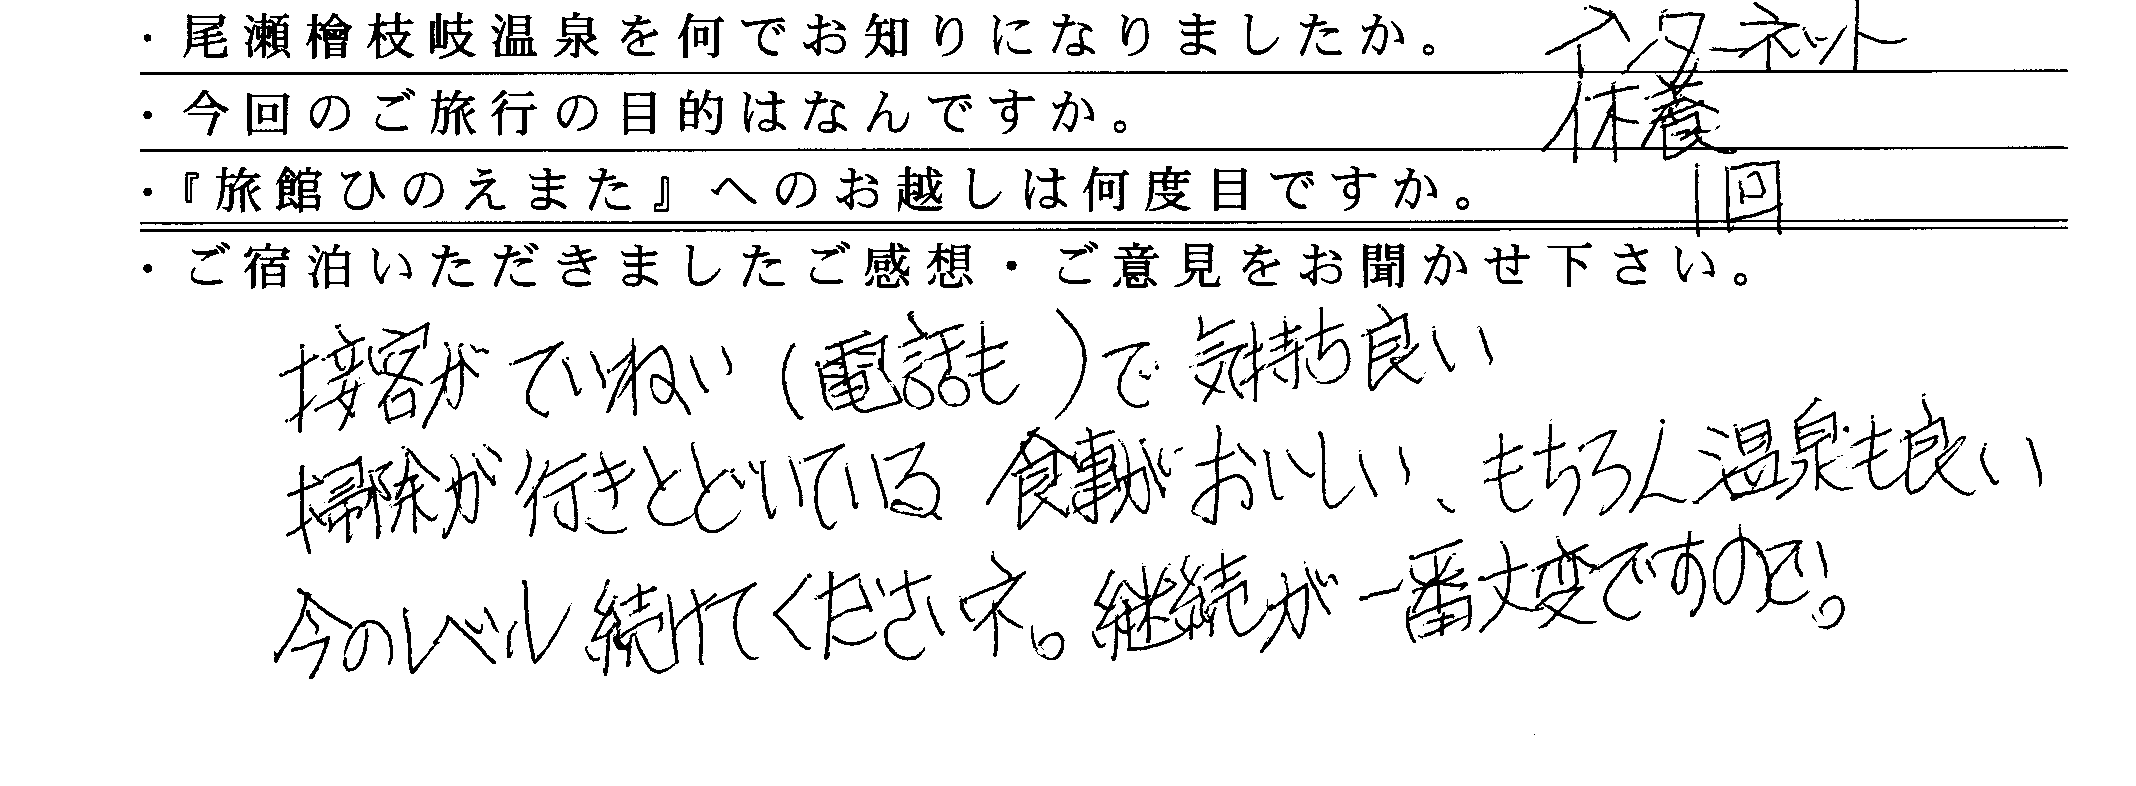 ・尾瀬檜枝岐温泉を何でお知りになりましたか。 インターネット
・今回のご旅行の目的はなんですか。 休養
・『旅館ひのえまた』へのお越しは何度目ですか。 1回
・ご宿泊いただきましたご感想・ご意見をお聞かせ下さい。
接客がていねい(電話も)で気持ち良い
掃除が行きとどいている 食事がおいしい、もちろん温泉も良い
今のレベル続けてくださいネ。継続が一番大変ですので!。